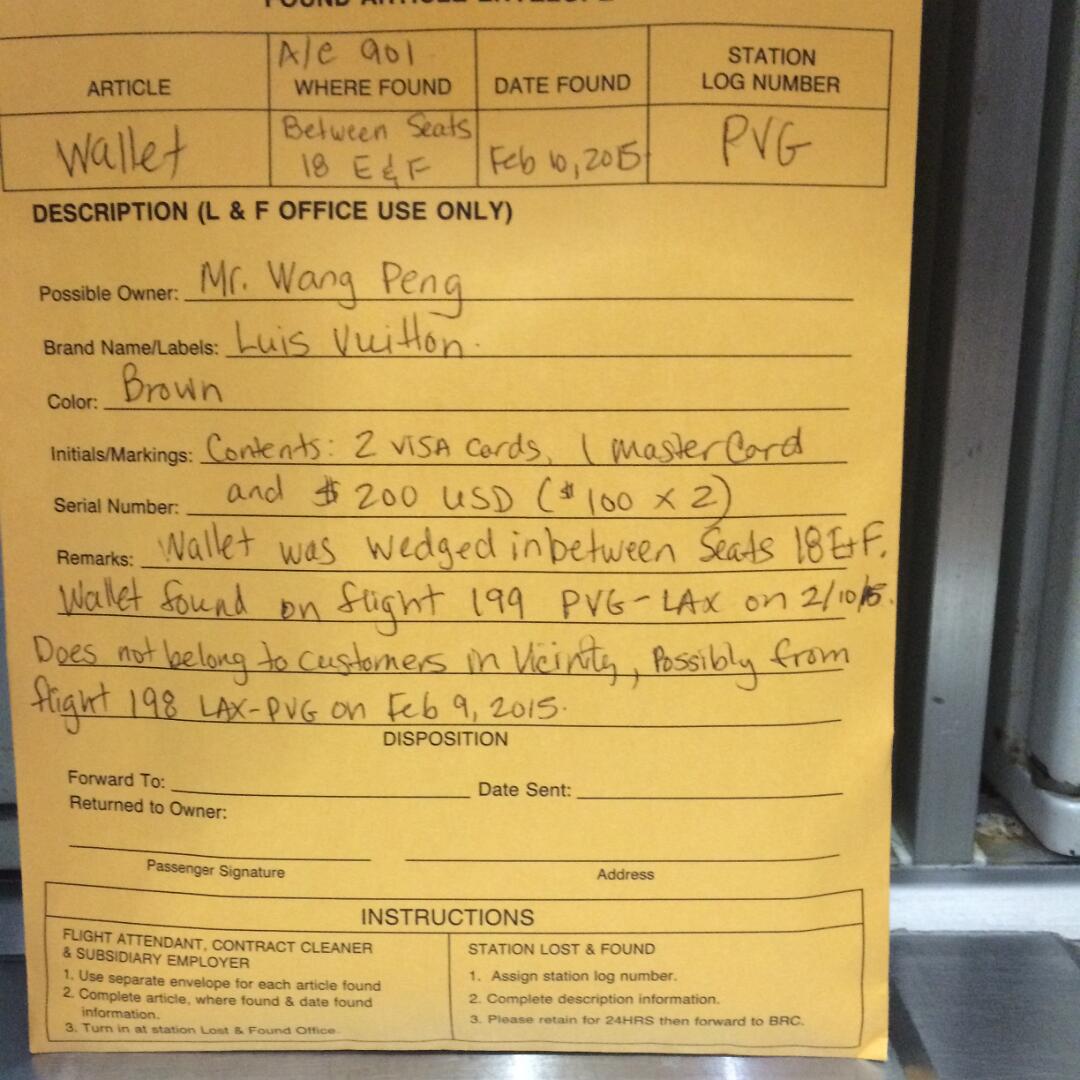 FOUND ARTICLE ENVELOPE
A/C 901
ARTICLE
WHERE FOUND
DATE FOUND
STATION
LOG NUMBER
Wallet
Between Seats
18 E & F
Feb 10, 2015
PVG
DESCRIPTION (L & F OFFICE USE ONLY)
Possible Owner: Mr. Wang Peng
Brand Name/Labels: Luis Vuitton.
Color: Brown
Initials/Markings: Contents: 2 VISA Cards, 1 MasterCard
Serial Number: and $ 200 USD ($100 x 2)
Remarks: Wallet was wedged inbetween Seats 18 E+F.
Wallet found on flight 199 PVG-LAX on 2/10/15.
Does not belong to customers in Vicinity, Possibly from
flight 198 LAX-PVG on Feb 9, 2015.
DISPOSITION
Forward To:
Date Sent:
Returned to Owner:
Passenger Signature
Address
INSTRUCTIONS
FLIGHT ATTENDANT, CONTRACT CLEANER
& SUBSIDIARY EMPLOYER
1. Use separate envelope for each article found
2. Complete article, where found & date found
information.
3. Turn in at station Lost & Found Office
STATION LOST & FOUND
1. Assign station log number.
2. Complete description information.
3. Please retain for 24HRS then forward to BRC.